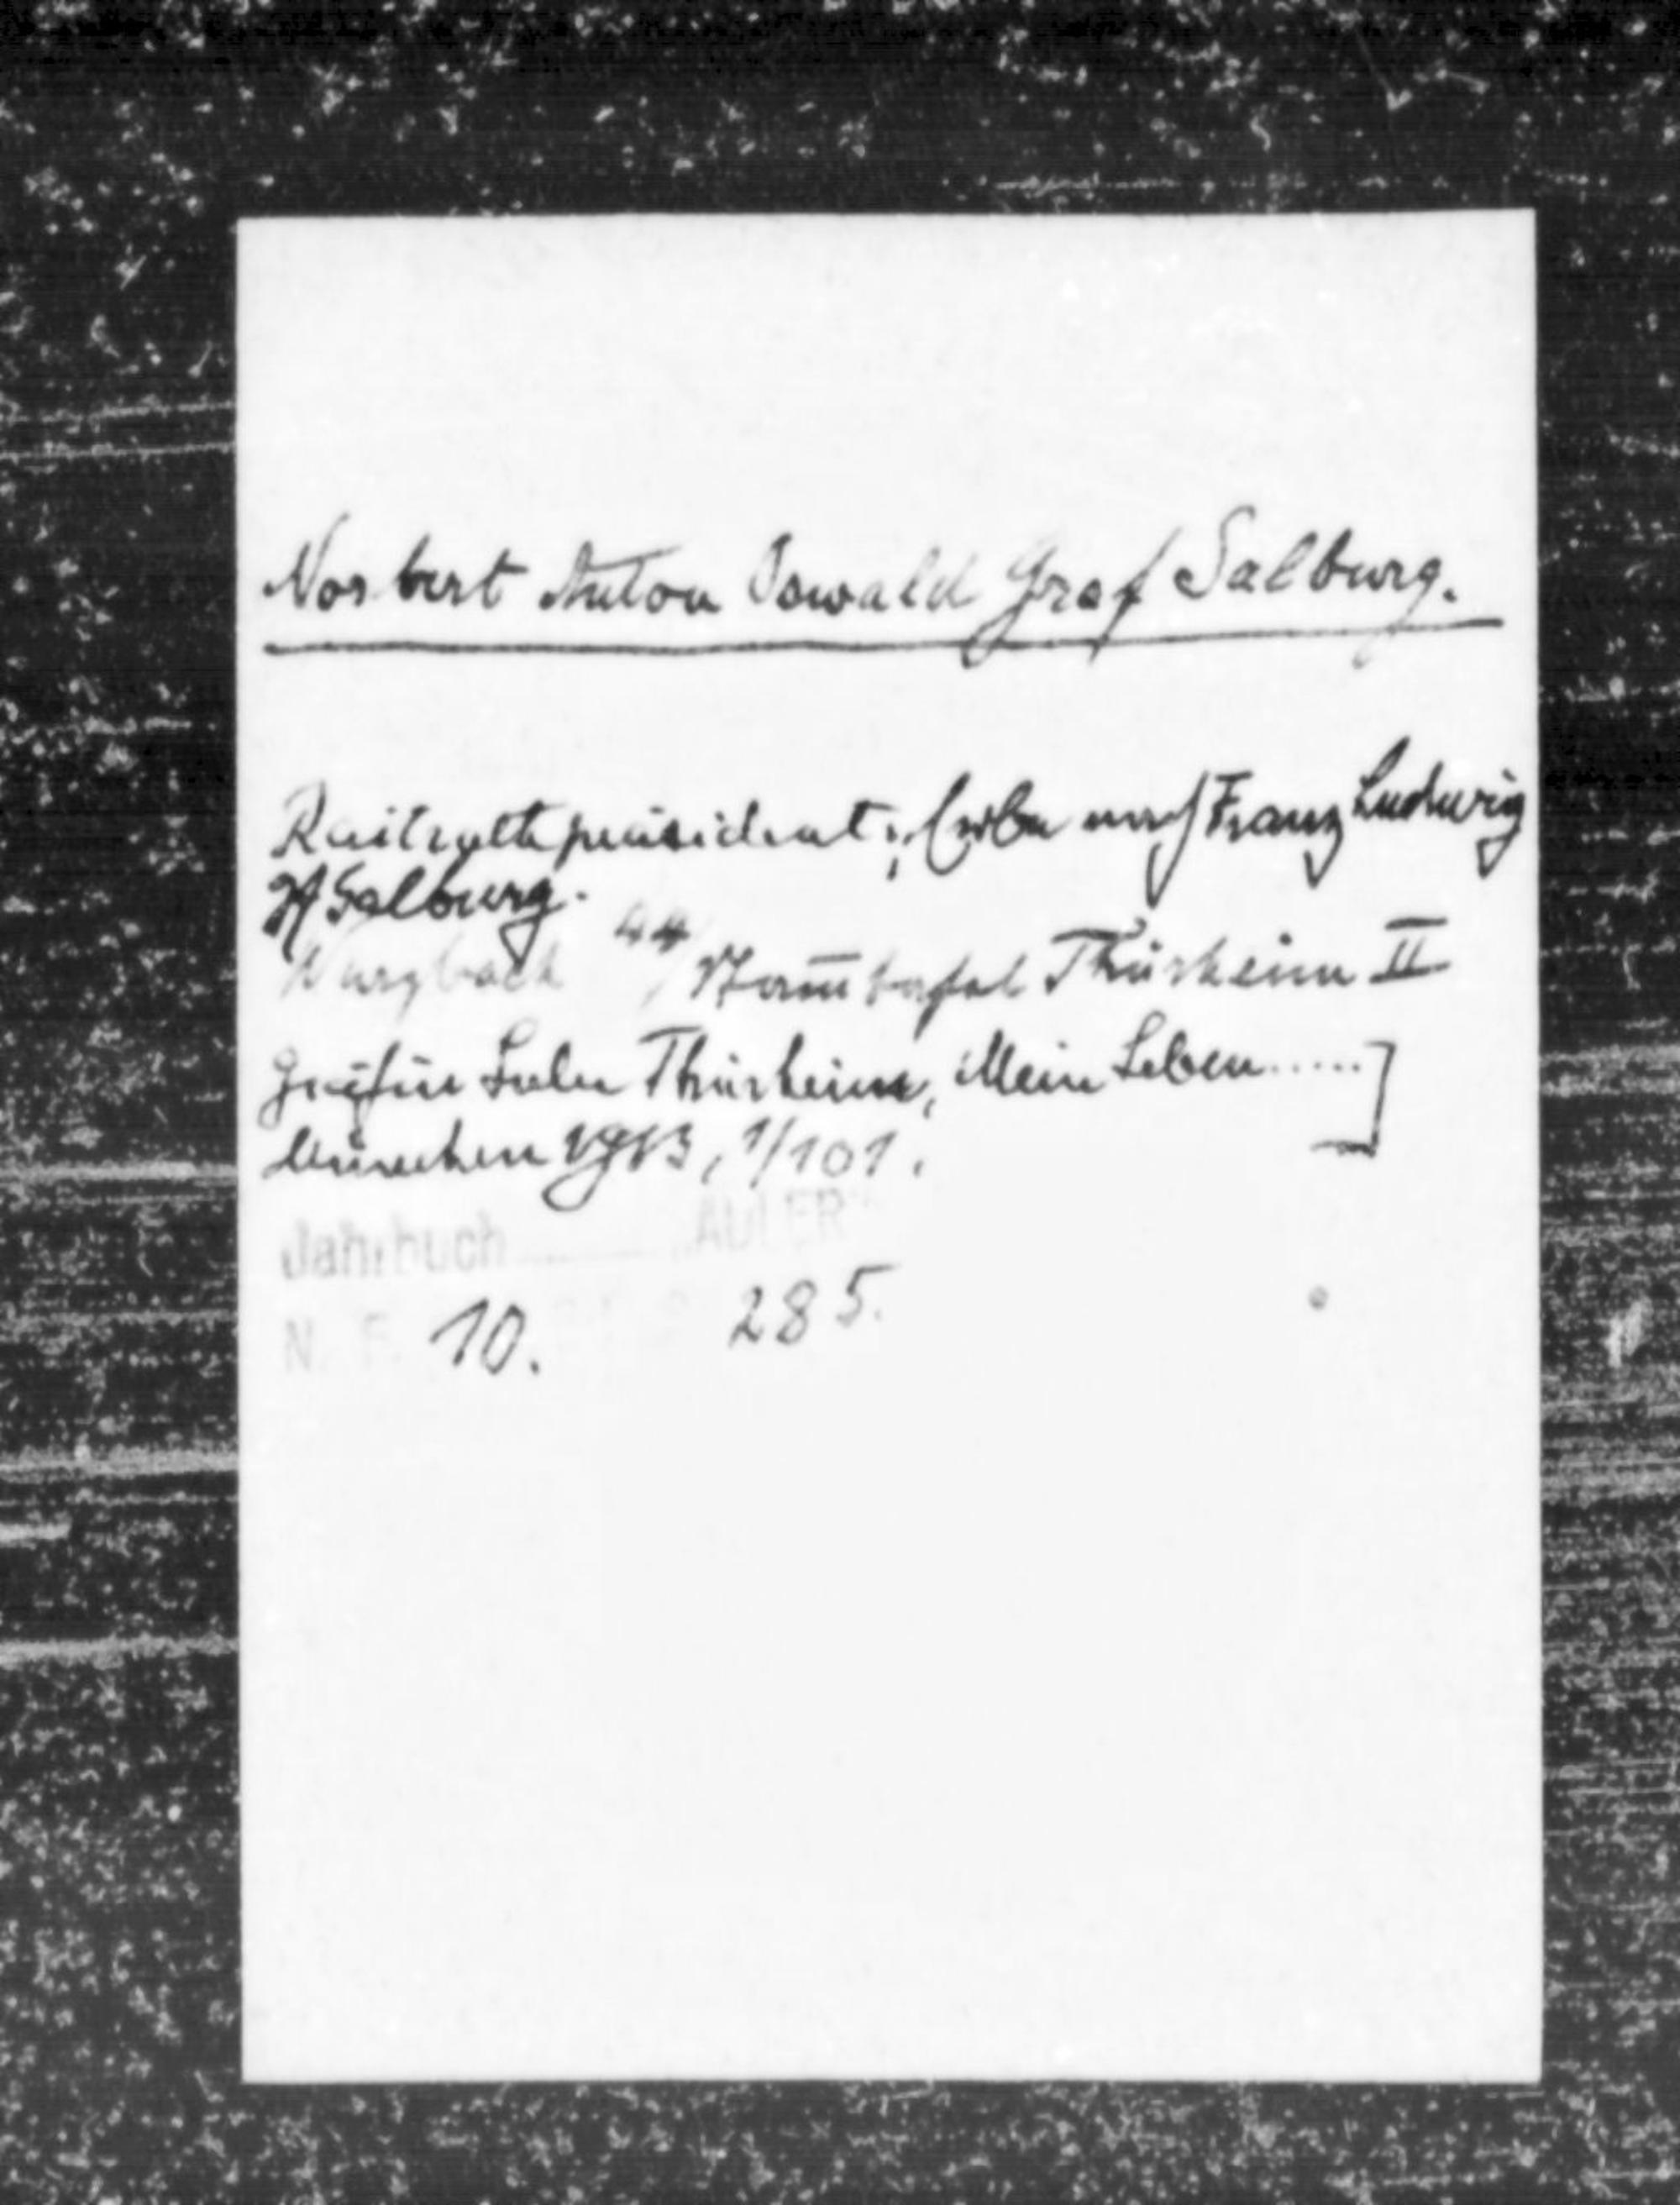 Norbert Anton Oswald Graf Salburg.
Raitrathpräsident; Erbe nach Franz Ludwig
Gf Salburg.
Wurzbach 44/ Stam̅tafel Thürheim II
Gräfin Lulu Thürheim, Mein Leben......]
München 1913, 1/101.
Jahrbuch „ADLER"
N. F. 10. 285.